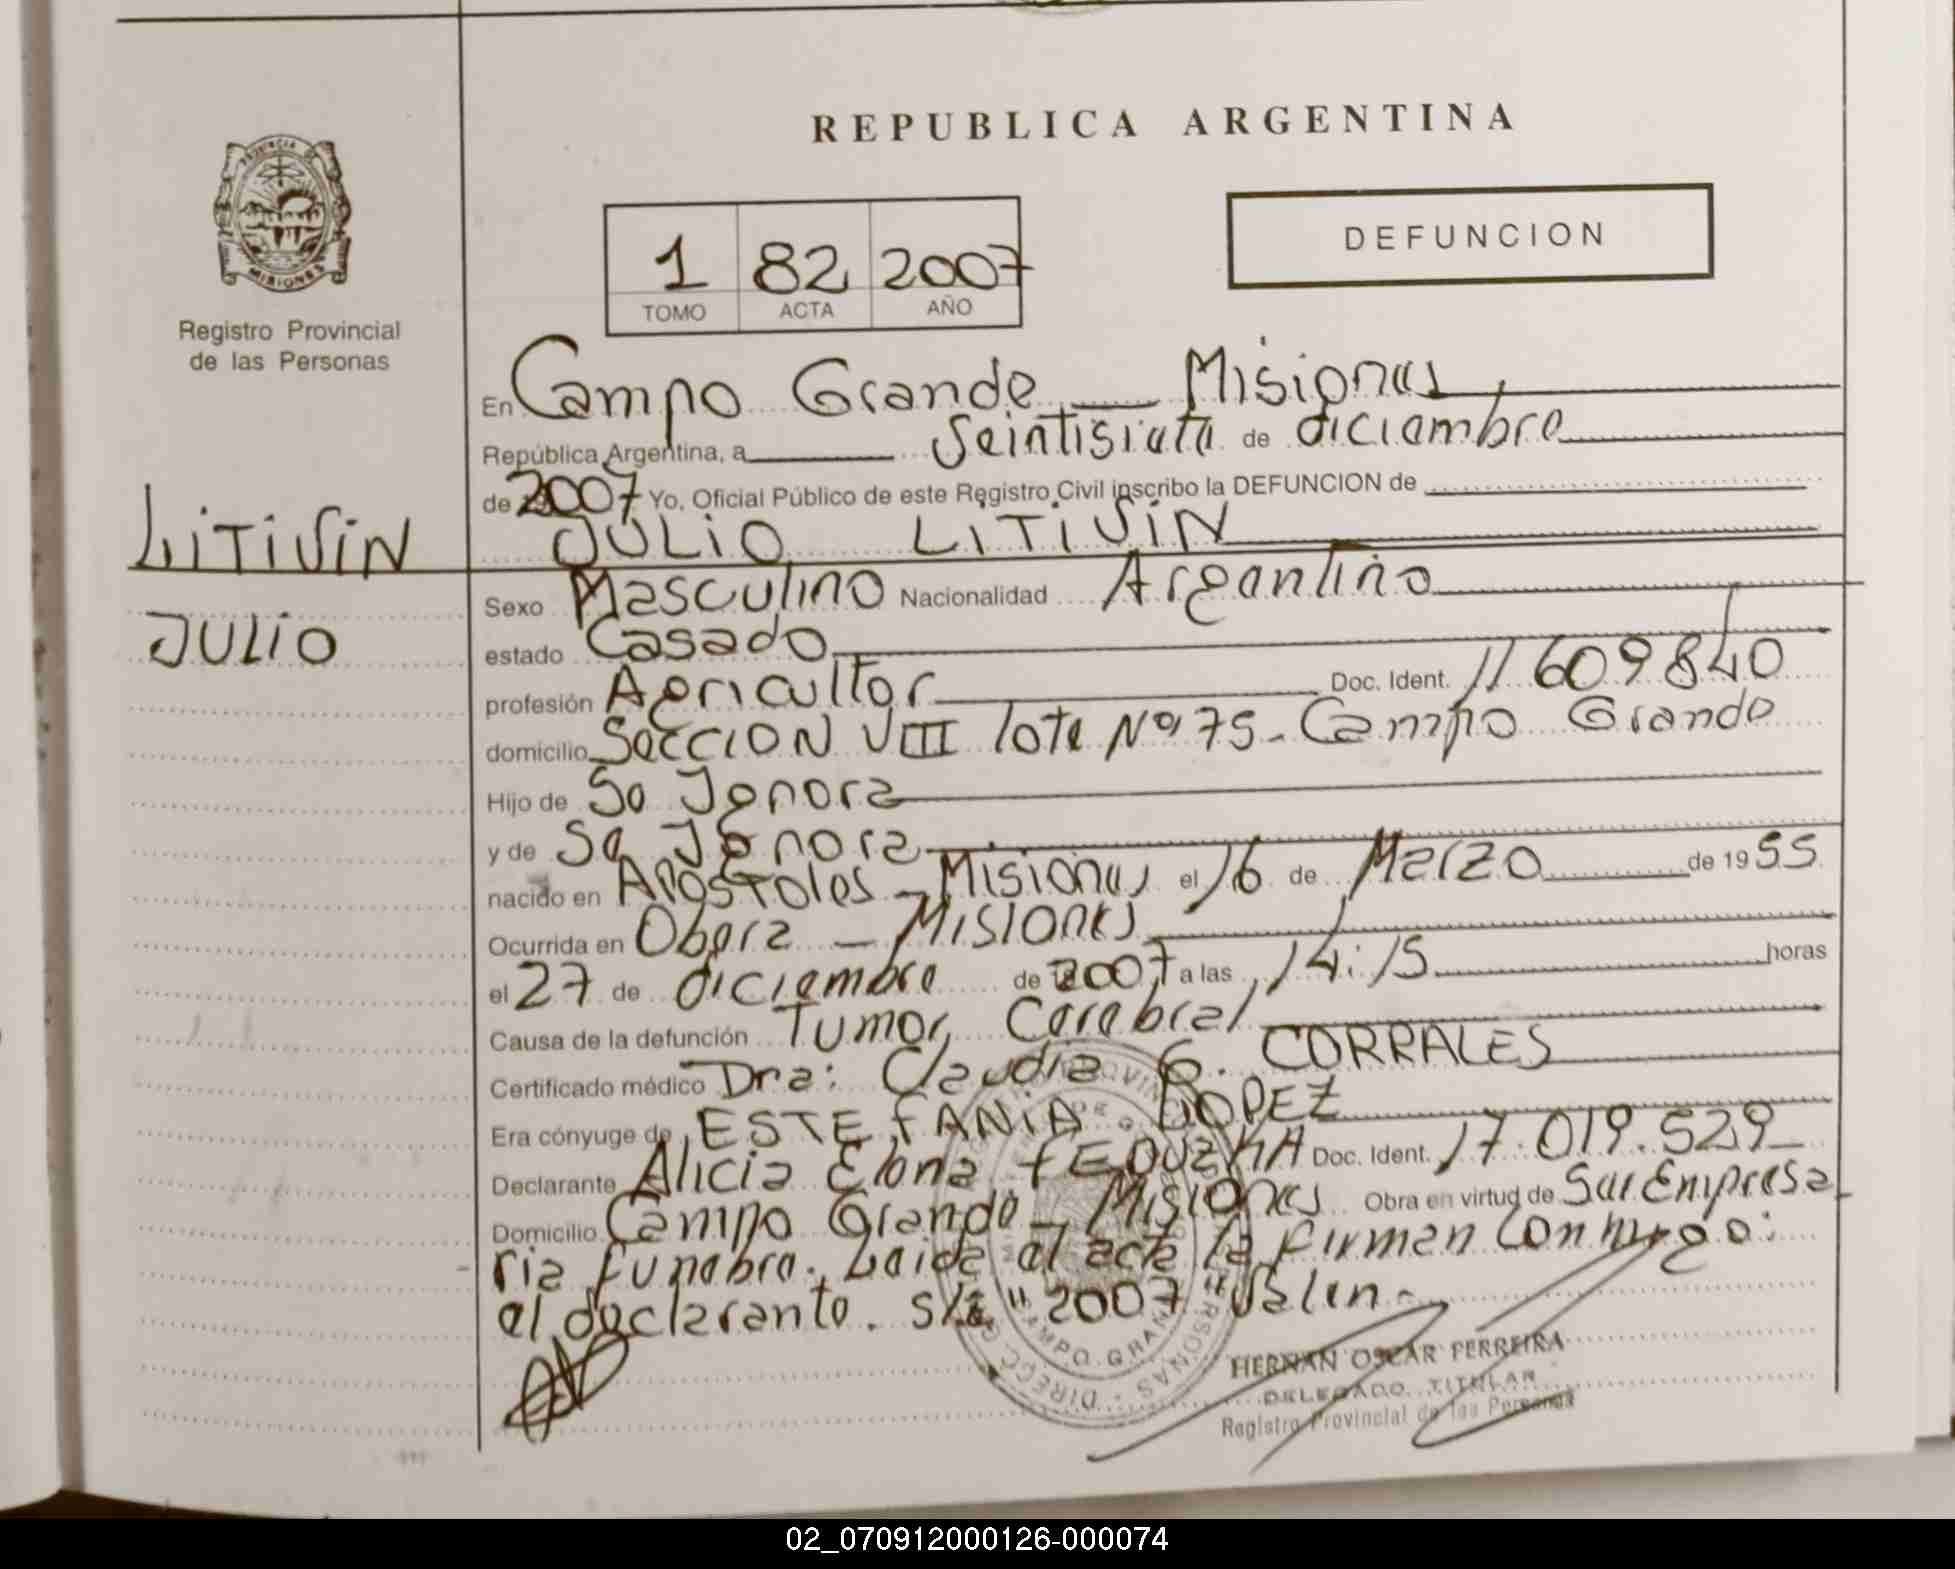 REPUBLICA ARGENTINA
PROVINCIA DE
MISIONES
Registro Provincial
de las Personas
1 82 2007
TOMO ACTA AÑO
DEFUNCION
En Campo Grande Misiones
República Argentina, a Veintisiete de diciembre
de 2007 Yo, Oficial Público de este Registro Civil inscribo la DEFUNCION de
LITIVIN
JULIO LITIVIN
JULIO
Sexo Masculino Nacionalidad Argentino
estado Casado
profesión Agricultor Doc. Ident. 11.609.840
domicilio Seccion VIII lote Nº 75 - Campo Grande
Hijo de Se Ignora
y de Se Ignora
nacido en Apostoles - Misiones el 16 de Marzo de 1955
Ocurrida en Obera - Misiones
el 27 de diciembre de 2007 a las 14:15 horas
Causa de la defunción Tumor Cerebral
Certificado médico Dra: Claudia G. CORRALES
Era cónyuge de ESTEFANIA LOPEZ
Declarante Alicia Elena Doc. Ident. 17.019.529
Domicilio Campo Grande - Misiones Obra en virtud de Ser Empresa
ria funebre. Leida el acta la firman Conmigo:
el declarante. s/r "2007" Valen.-
CAMPO GRANDE
HERNAN OSCAR FERREIRA
DELEGADO TITULAR
Registro Provincial de las Personas
02_070912000126-000074